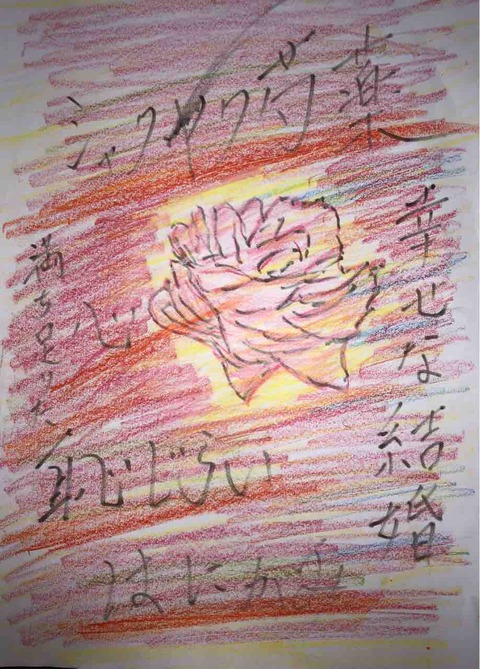 シャクヤク芍薬
幸せな結婚
満ち足りた
心
恥じらい
はにかみ